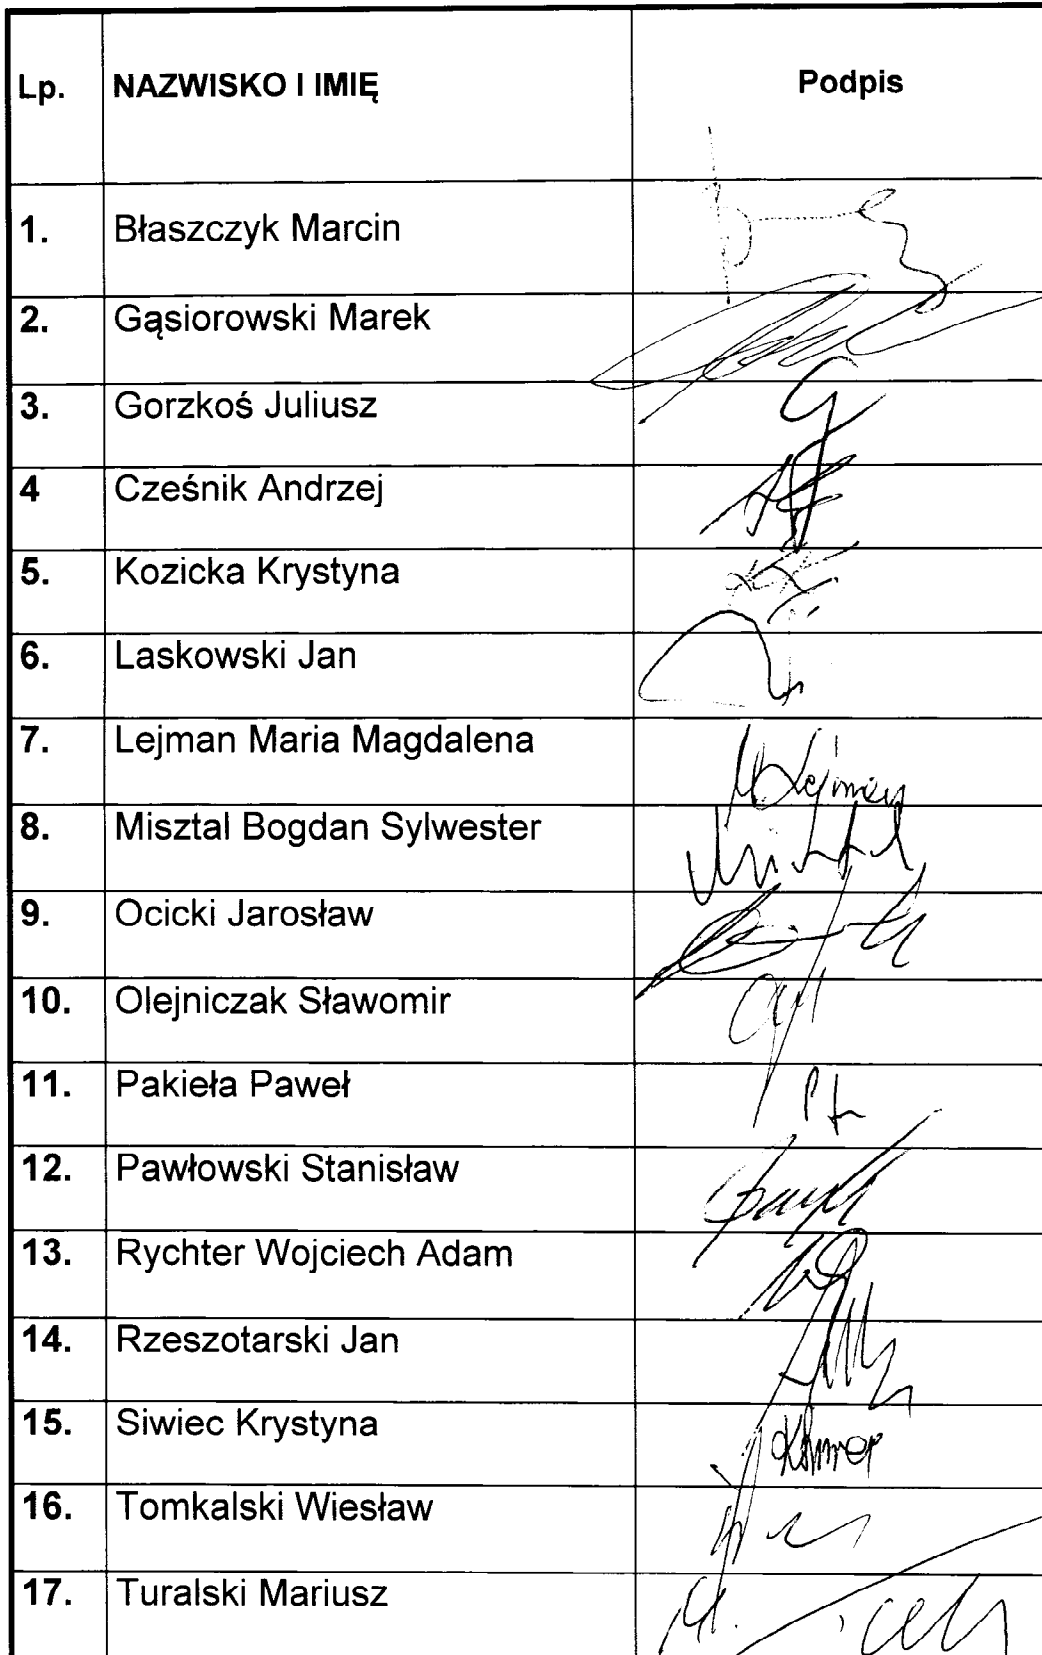 Lp. NAZWISKO I IMIĘ Podpis
1. Błaszczyk Marcin
2. Gąsiorowski Marek
3. Gorzkoś Juliusz
4 Cześnik Andrzej
5. Kozicka Krystyna
6. Laskowski Jan
7. Lejman Maria Magdalena MLejman
8. Misztal Bogdan Sylwester
9. Ocicki Jarosław
10. Olejniczak Sławomir
11. Pakieła Paweł
12. Pawłowski Stanisław
13. Rychter Wojciech Adam
14. Rzeszotarski Jan
15. Siwiec Krystyna
16. Tomkalski Wiesław
17. Turalski Mariusz